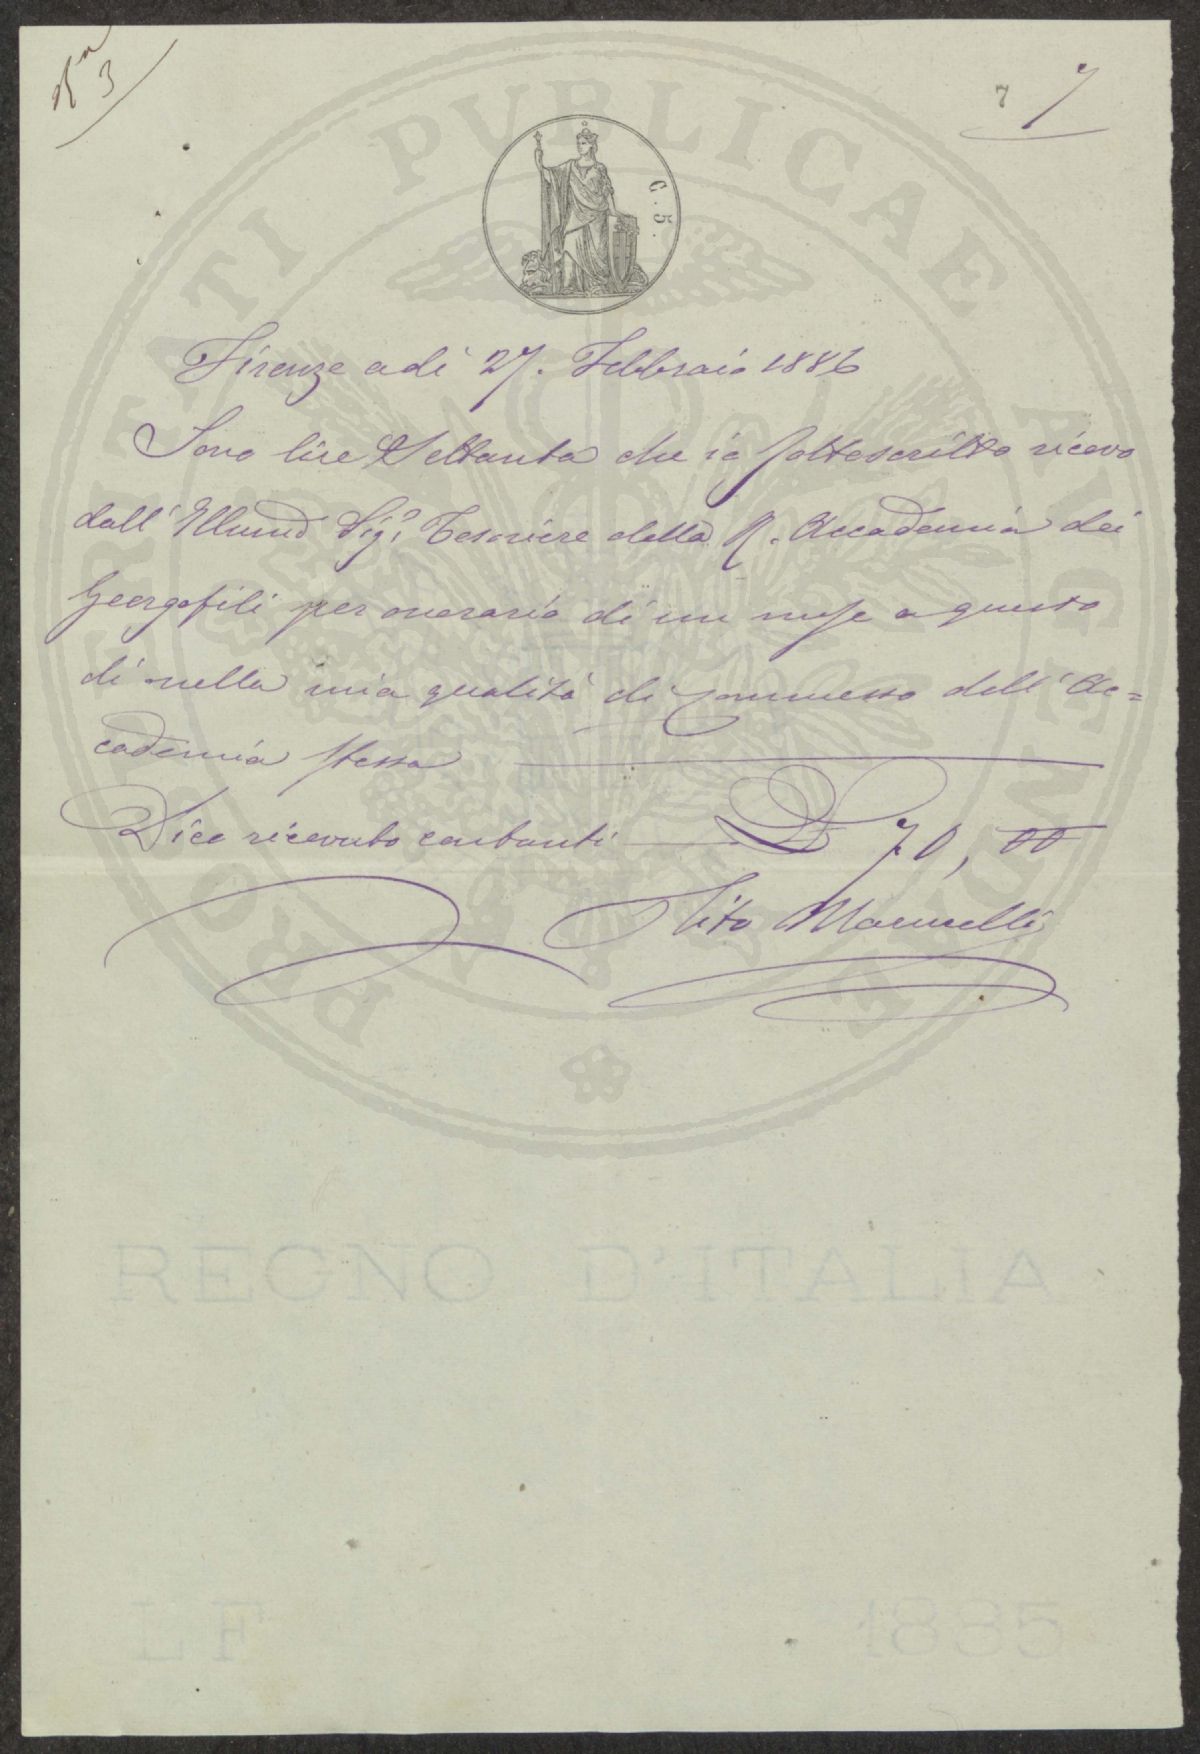 3
7 7
C. 5.
PROSPERITATI PUBLICAE AUGENDAE
Firenze adì 27. Febbraio 1886
Sono lire Settanta che io sottoscritto ricevo
dall' Illmo Sigr. Tesoriere della R. Accademia dei
Georgofili per onorario di un mese a questo
dì nella mia qualità di Commesso dell' Ac=
cademia stessa
Dico ricevuto contanti L 70, 00
Tito Marucelli
REGNO D'ITALIA
LF 1885